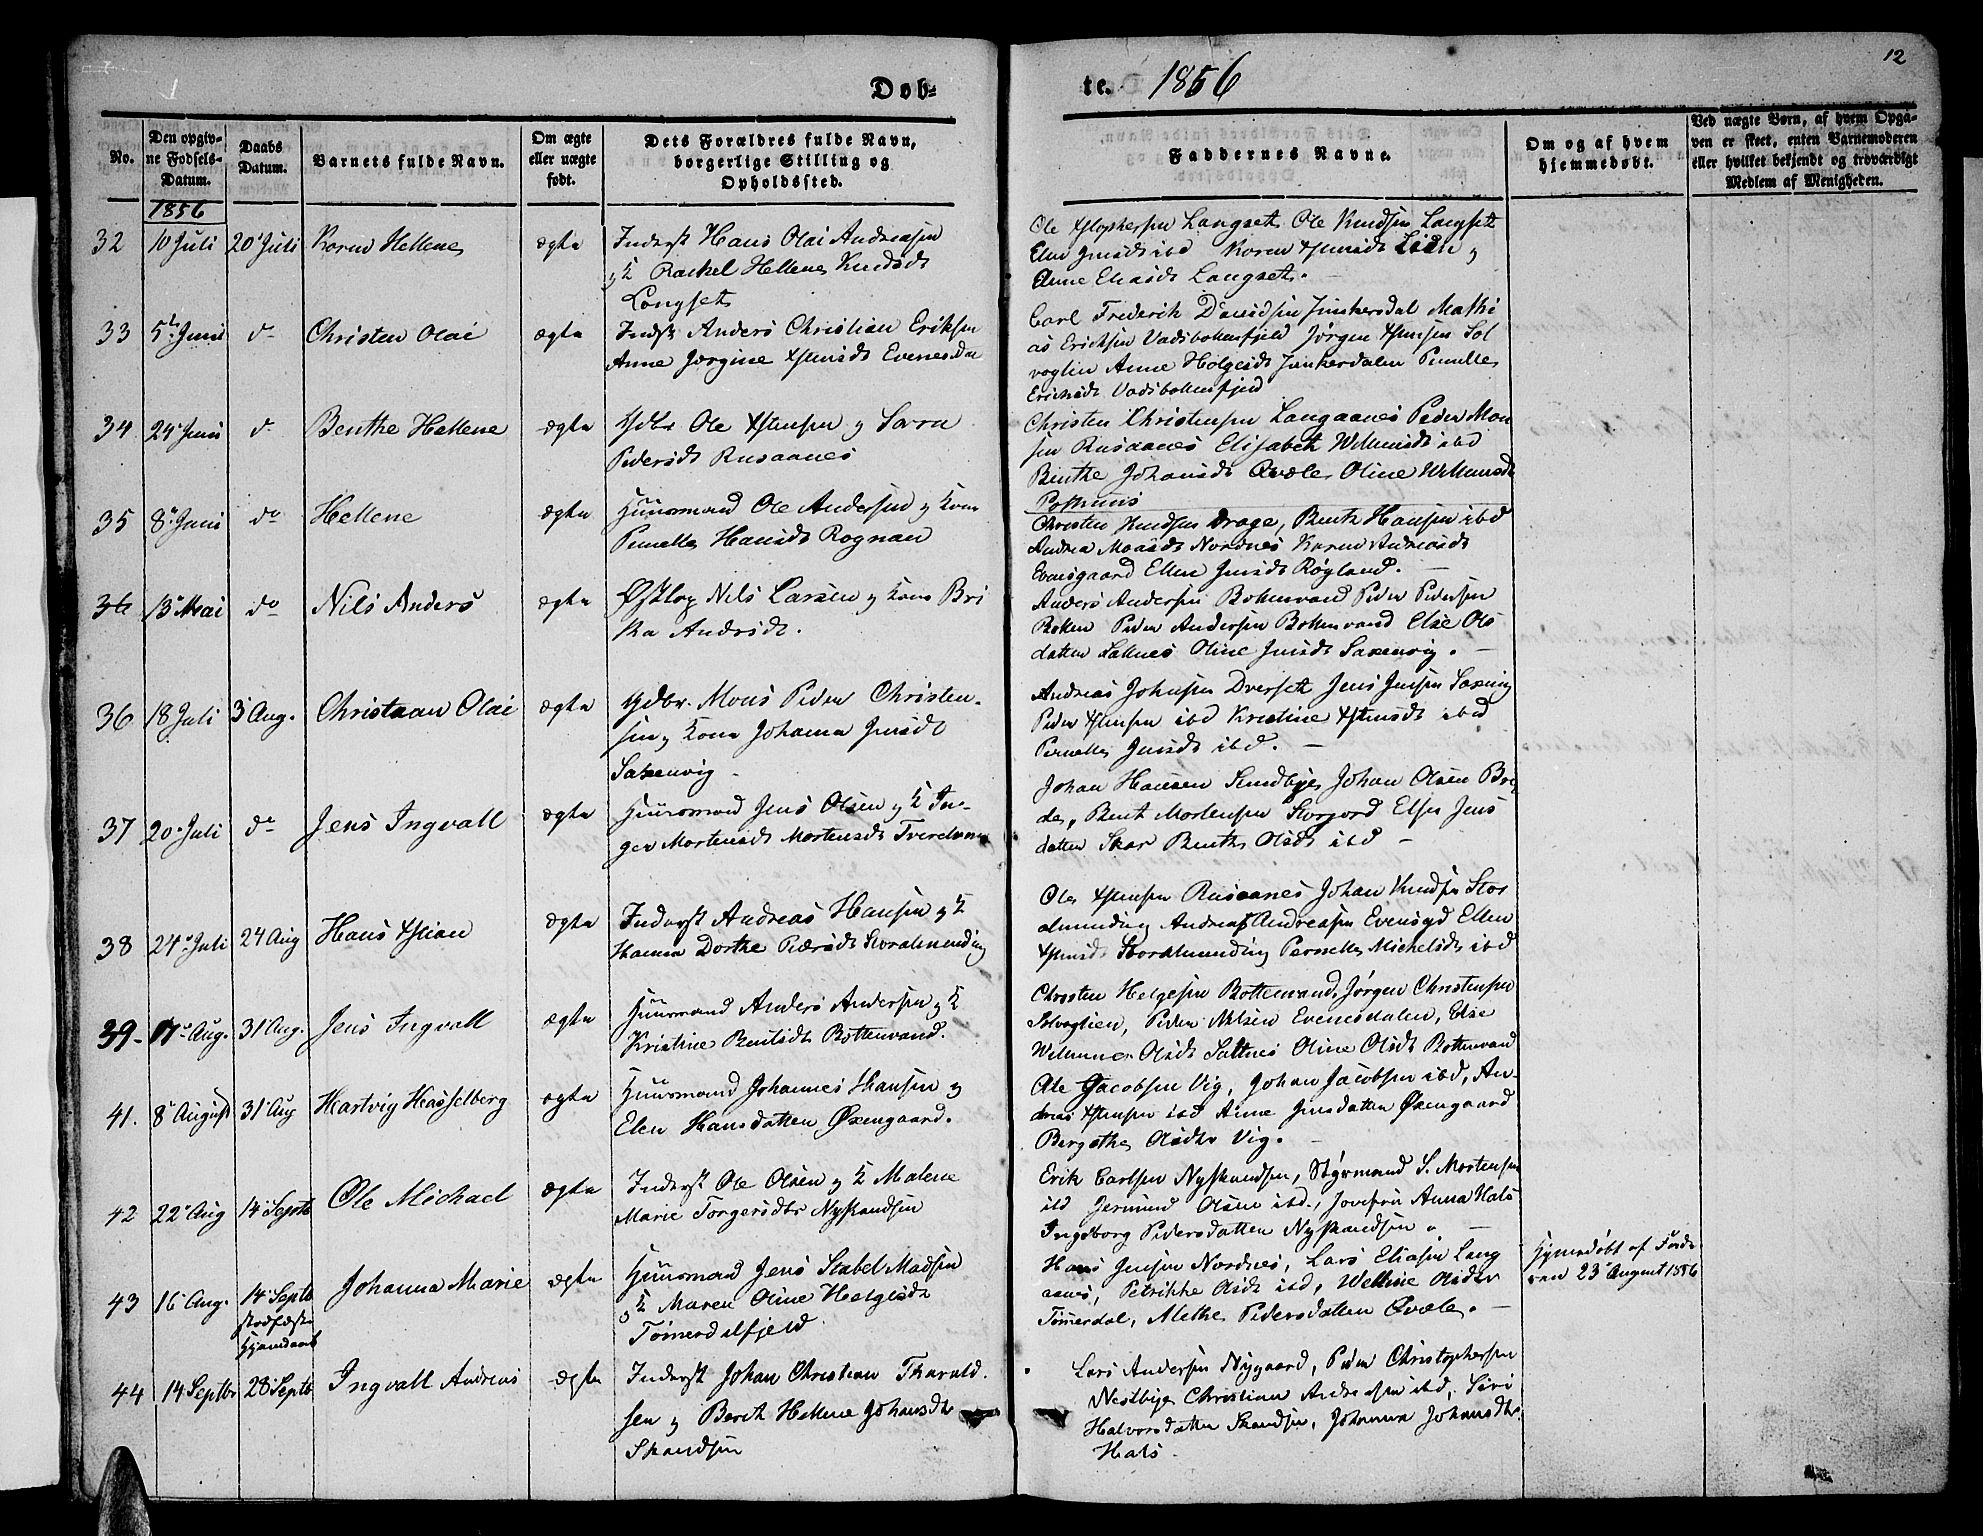 12
Døb-
te. 1856
No.
Den opgiv-
ne Fødsels-
Datum.
Daabs
Datum.
Barnets fulde Navn.
Om ægte
eller uægte
født.
Dets Forældres fulde Navn,
borgerlige Stilling og
Opholdssted.
Faddernes Navne.
Om og af hvem
hjemmedøbt.
Ved uægte Børn, af hvem Opga-
ven er skeet, enten Barnemoderen
eller hvilket bekjendt og troværdigt
Medlem af Menigheden.
1856
32 10 Juli 20 Juli Karen Hellene ægte
Inderst Hans Olai Andreasen
og K Rackel Hellene Knudsdt
Langset
Ole Langset Ole Knudsen Langset
Elen Jensdt ibd Karen
Anne Eliasdt Langset.
33 5te Juni do Christen Olai ægte
Inderst Anders Christian Eriksen
Anne Jørgine Evenesda
Carl Frederik Davidsen Junkersdal Mathi
as Ericksen Jørgen Sol
vaglin Anne Holgesdt Junkerdalen Pernelle
Ericksdt
34 24 Juni do Benthe Hellene ægte
Ole og Sara
Pedersdt Rusaanes
Christen Christensen Langaanes Peder Mon
sen Rusaanes Elisabeth Willumsdt ibd
Benthe Johansdt Qvæle, Oline Willumsdt
35 8 Juni do Hellene ægte
Huusmand Ole Andersen og Kone
Pernelle Hansdt Rognan
Christen Knudsen Drage, Bent Hansen ibd
Andrea Moasdt Nordnes Karen Andreasdt
Evensgaard Ellen Jensdt Røgland.
36 13 Mai do Nils Anders ægte
Nils Larsen og Kone Bri
ta Andrsdt.
Anders Andersen Bottenvand Peder Pedersen
Botten Peder Andersen Bottenvand Else Ols
datten Saltnes Oline Jensdt Saxenvig.
36 18 Juli 3 Aug. Christian Olai ægte
Gdbr. Mons Peder Christen-
sen og Kone Johanna Jensdt
Saxenvig
Andreas Johnsen Dverset Jens Jensen Saxenvig
Peder ibd Kristine ibd
Pernelle Jensdt ibd.
37 20 Juli do Jens Ingvall ægte
Huusmand Jens Olsen og K In-
ger Mortensdt Mortensdt
Johan Hansen Sundbye Johan Olsen Bre
de, Bent Mortensen Storjord Else Jens
datten Skar Benthe Olsdt ibd
38 24 Juli 24 Aug Hans Xstian ægte
Inderst Andreas Hansen og K
Hanna Dorthe Storalmending
Ole Rusaanes Johan Knudsen Stor
almending Andreas Andreasen Evensgd Ellen
Storalmending Pernelle Michelsdt ibd
39 17 Aug. 31 Aug. Jens Ingvall ægte
Huusmand Anders Andersen og K
Kristine Bentsdt Bottenvand.
Christen Helgesen Bottenvand, Jørgen Christensen
Solvaglien, Peder Nilsen Evenesdalen, Else
Willumine Olsdt Saltnes Oline Olsdt Bottenvand
41. 8 August 31 Aug Hartvig Hasselberg ægte
Huusmand Johannes Hansen og
Elen Hansdatten Øxengaard.
Ole Jacobsen Vig, Johan Jacobsen ibd, An-
dreas ibd Anne Jensdatten Øxengaard
Bergethe Olsdtr Vig.
42 22 Aug 14 Septb Ole Michael ægte
Inderst Ole Olsen og K Malene
Marie Torgersdtr
Erik Carlsen Styrmand S. Mortensen
ibd Jermund Olsen ibd., Anna Hals
Ingeborg Pedersdatten
43 16 Aug. 14 Septb Johanna Marie ægte
stadfæstet
Hjemdaab
Huusmand Jens Stabel Madsen
og K Maren Oline Helgesdt
Tømerdalfjeld
Hans Jensen Nordnes, Lars Eliasen Lang
aanes, Petrikke Olsdt ibd, Olsdtr
Tømerdal, Methe Pedersdatten Qvæle.
Hjemdøbt af Fade
ren 23 August 1856
44 14 Septbr 28 Septb Ingvall Andreas ægte
Inderst Johan Christian Tharald
sen og Berith Hellene Johansdt
Lars Andersen Nygaard, Peder Christophersen
Nestbye Christian Andreasen ibd, Siri
Halvorsdatten Johanna Johansdtr
Hals.